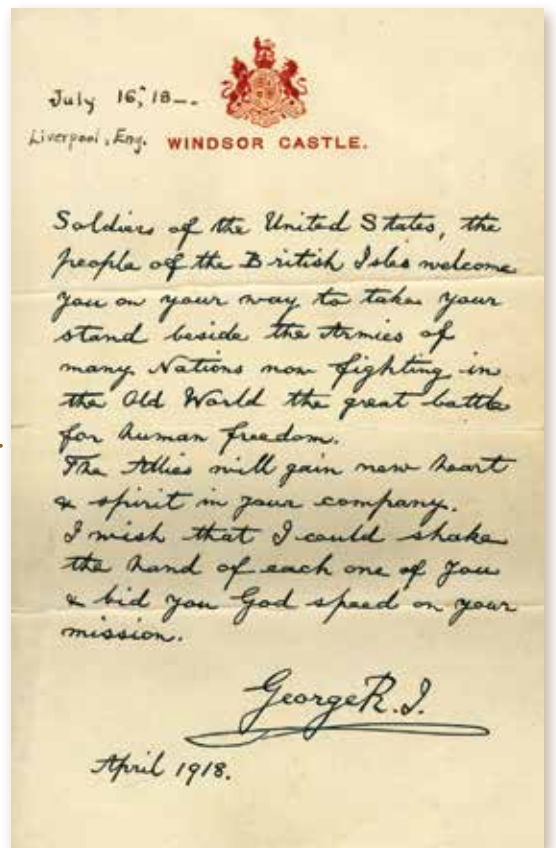 July 16, '18—.
Liverpool, Eng.
WINDSOR CASTLE.
Soldiers of the United States, the
people of the British Isles welcome
you on your way to take your
stand beside the Armies of
many Nations now fighting in
the Old World the great battle
for human freedom.
The Allies will gain new heart
& spirit in your company.
I wish that I could shake
the hand of each one of you
& bid you God speed on your
mission.
George R.I.
April 1918.